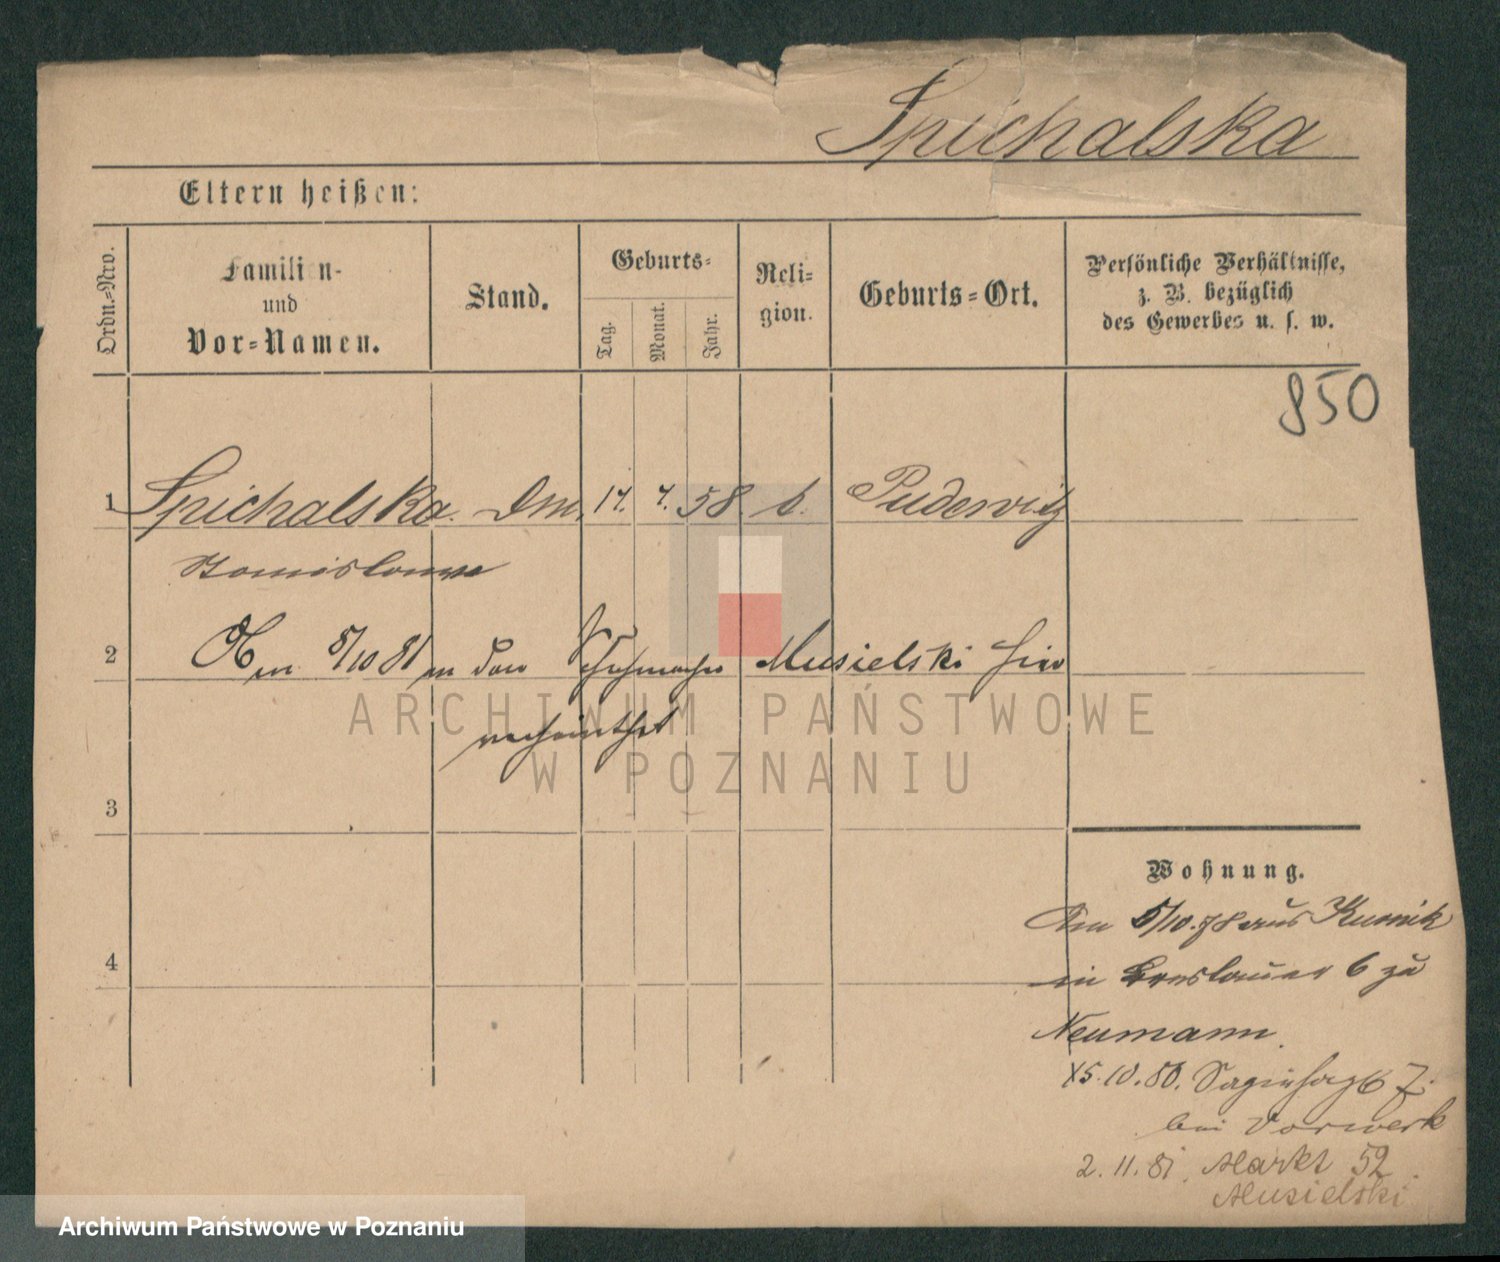 Spichalska
Eltern heißen:
Ordn.=Nro.
Familien-
und
Vor=Namen.
Stand.
Geburts=
Tag.
Monat.
Jahr.
Reli=
gion.
Geburts=Ort.
Persönliche Verhältnisse,
z. B. bezüglich
des Gewerbes u. s. w.
850
1 Spichalska. 17. 7. 58 Pudewitz
Stanislawa
2 5/10 81 an den Schuhmacher Musielski hier
verheirathet
ARCHIWUM PAŃSTWOWE
W POZNANIU
3
Wohnung.
Am 5/10. 78 aus Kurnik
4
in Breslauer 6 zu
Neumann.
15.10.80. 7.
bei Vorwerk
2. 11. 81. Markt 52
Musielski
Archiwum Państwowe w Poznaniu